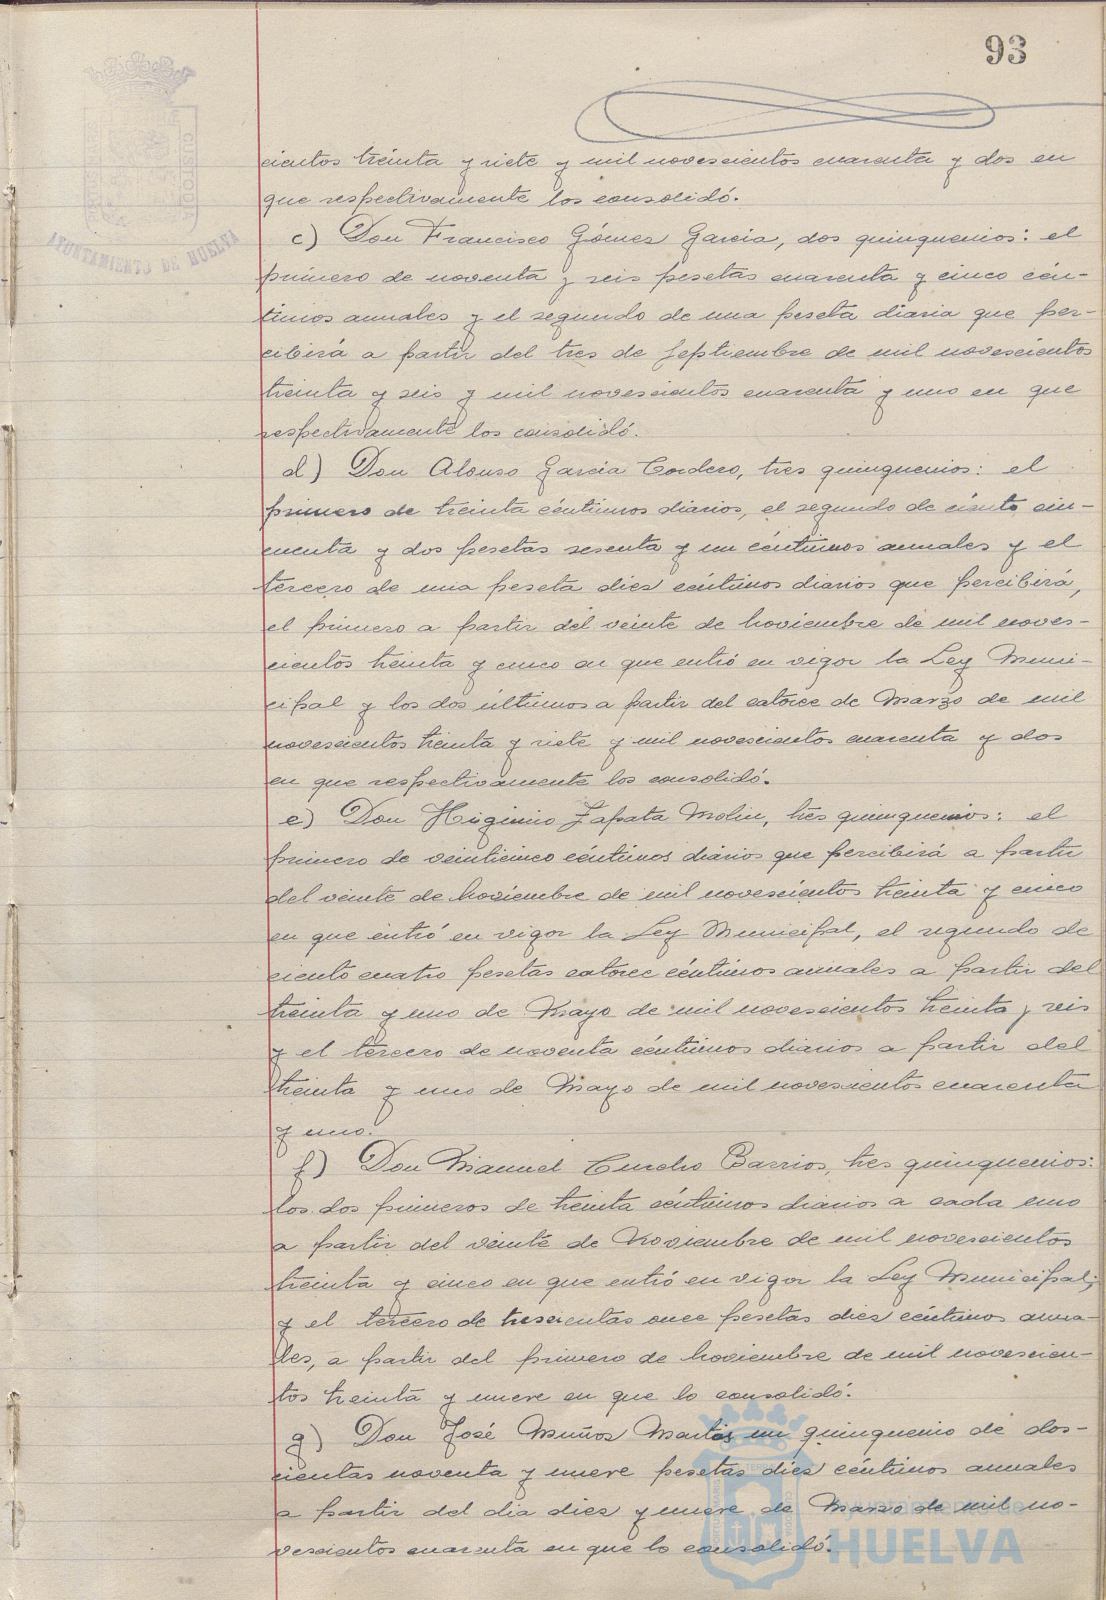 93
AYUNTAMIENTO DE HUELVA
cientos treinta y siete y mil novescientos cuarenta y dos en
que respectivamente los consolidó.
c) Don Francisco Gómez García, dos quinquenios: el
primero de noventa y seis pesetas cuarenta y cinco cén-
timos anuales y el segundo de una peseta diaria que per-
cibirá a partir del tres de Septiembre de mil novescientos
treinta y seis y mil novescientos cuarenta y uno en que
respectivamente los consolidó.
d) Don Alonso García Cordero, tres quinquenios: el
primero de treinta céntimos diarios, el segundo de ciento cin-
cuenta y dos pesetas sesenta y un céntimos anuales y el
tercero de una peseta diez céntimos diarios que percibirá,
el primero a partir del veinte de Noviembre de mil noves-
cientos treinta y cinco en que entró en vigor la Ley Muni-
cipal y los dos últimos a partir del catorce de Marzo de mil
novescientos treinta y siete y mil novescientos cuarenta y dos
en que respectivamente los consolidó.
e) Don Higinio Zapata Molin, tres quinquenios: el
primero de veinticinco céntimos diarios que percibirá a partir
del veinte de Noviembre de mil novescientos treinta y cinco
en que entró en vigor la Ley Municipal, el segundo de
ciento cuatro pesetas catorce céntimos anuales a partir del
treinta y uno de Mayo de mil novescientos treinta y seis
y el tercero de noventa céntimos diarios a partir del
treinta y uno de Mayo de mil novescientos cuarenta
y uno.
f) Don Manuel Barrios, tres quinquenios:
los dos primeros de treinta céntimos diarios a cada uno
a partir del veinte de Noviembre de mil novescientos
treinta y cinco en que entró en vigor la Ley Municipal;
y el tercero de trescientas once pesetas diez céntimos anua-
les, a partir del primero de Noviembre de mil novescien-
tos treinta y nueve en que lo consolidó.
g) Don José Muños Martis un quinquenio de dos-
cientas noventa y nueve pesetas diez céntimos anuales
a partir del dia diez y nueve de Marzo de mil no-
vescientos cuarenta en que lo consolidó.
Ayuntamiento de
HUELVA